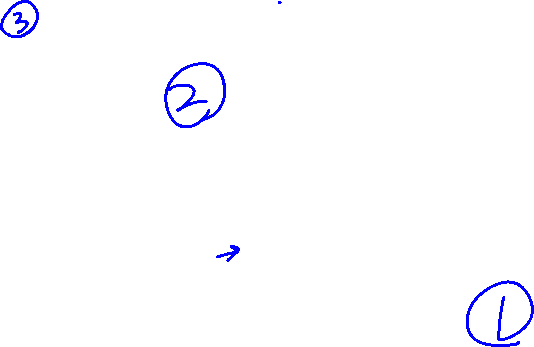 ③
②
→
①